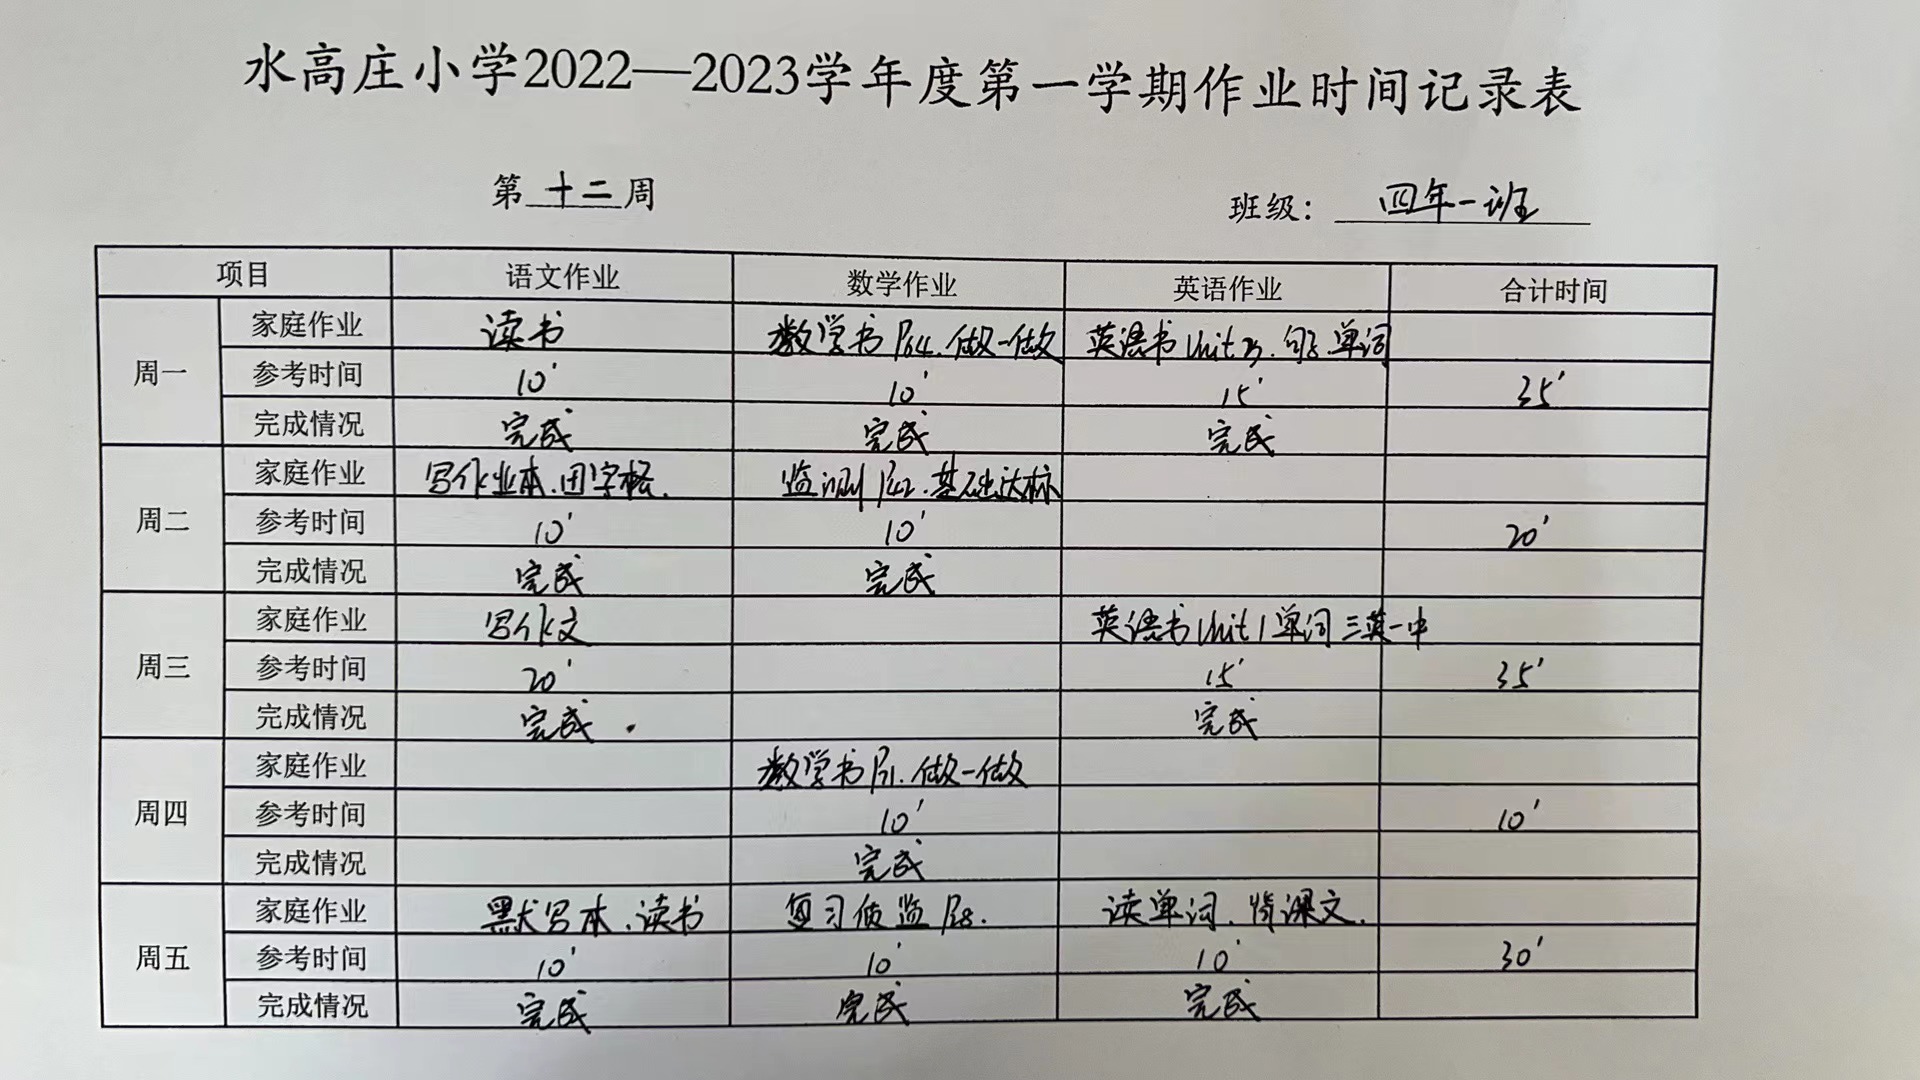 水高庄小学2022—2023学年度第一学期作业时间记录表
第 十二 周 班级： 四年一班
项目 语文作业 数学作业 英语作业 合计时间
周一
家庭作业 读书 数学书P64.做一做 英语书Unit 单词
参考时间 10′ 10′ 15′ 35′
完成情况 完成 完成 完成
周二
家庭作业 写作业本.田字格. 监测P42.基础达标
参考时间 10′ 10′ 20′
完成情况 完成 完成
周三
家庭作业 写作文 英语书Unit1单词三英一中
参考时间 20′ 15′ 35′
完成情况 完成 完成
周四
家庭作业 数学书P71.做一做
参考时间 10′ 10′
完成情况 完成
周五
家庭作业 默写本.读书 复习 监 读单词.背课文.
参考时间 10′ 10′ 10′ 30′
完成情况 完成 完成 完成